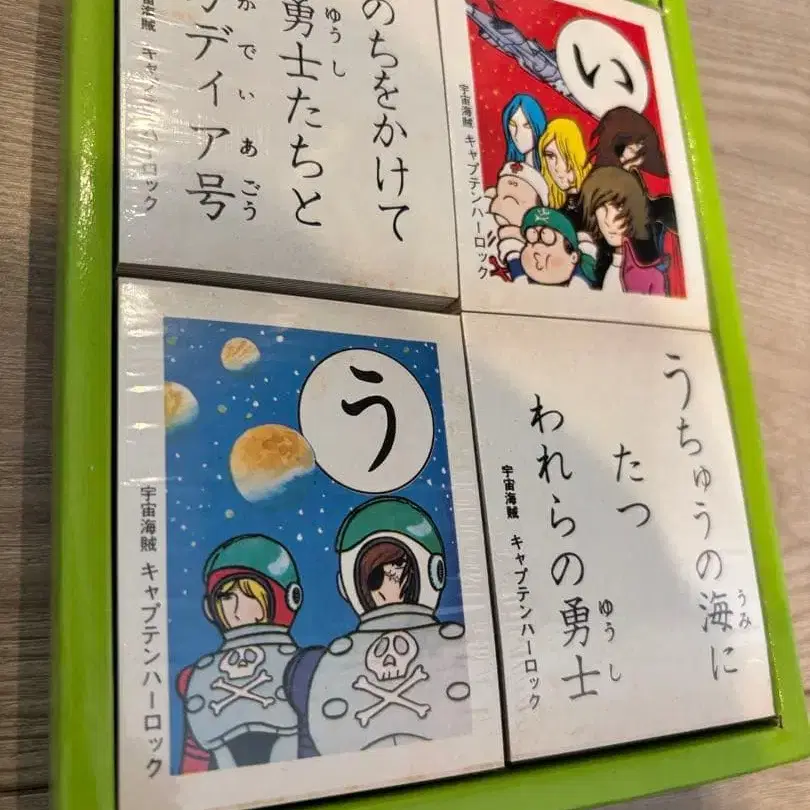 のちをかけて
勇士たちと
ゆうし
ディア号
かでぃあごう
宇宙海賊 キャプテンハーロック
い
宇宙海賊 キャプテンハーロック
う
宇宙海賊 キャプテンハーロック
うちゅうの海に
うみ
たつ
われらの勇士
ゆうし
宇宙海賊 キャプテンハーロック